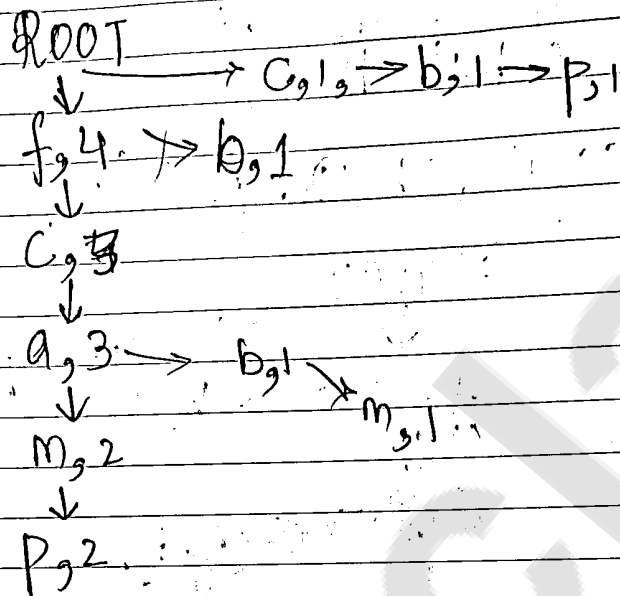 ROOT
→ c,1, → b,1 → p,1
↓
f,4 → b,1
↓
c,3
↓
a,3 → b,1
↓ ↘ m,1
m,2
↓
p,2